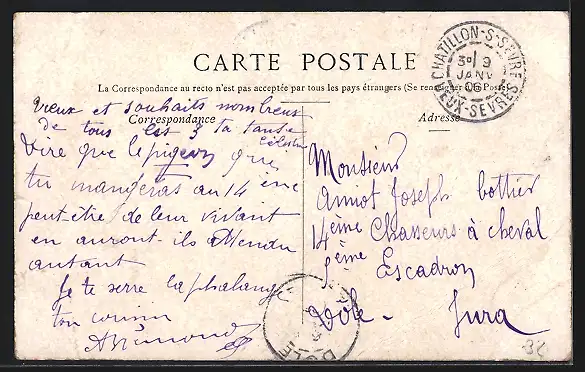 CARTE POSTALE
La Correspondance au recto n'est pas acceptée par tous les pays étrangers (Se renseigner à la Poste)
Correspondance
Adresse
CHATILLON-S-SÈVRE
9
JANV
06
DEUX-SÈVRES
Vœux et souhaits nombreux
de tous les 3 ta tante
Célestine
Dire que le pigeon que
tu mangeras au 14 ème
peut-être de leur vivant
en auront-ils attendu
autant
Je te serre la phalange
ton cousin
Monsieur
Amiot Joseph bottier
14ème Chasseurs à cheval
Escadron
Dole - Jura
DOLE